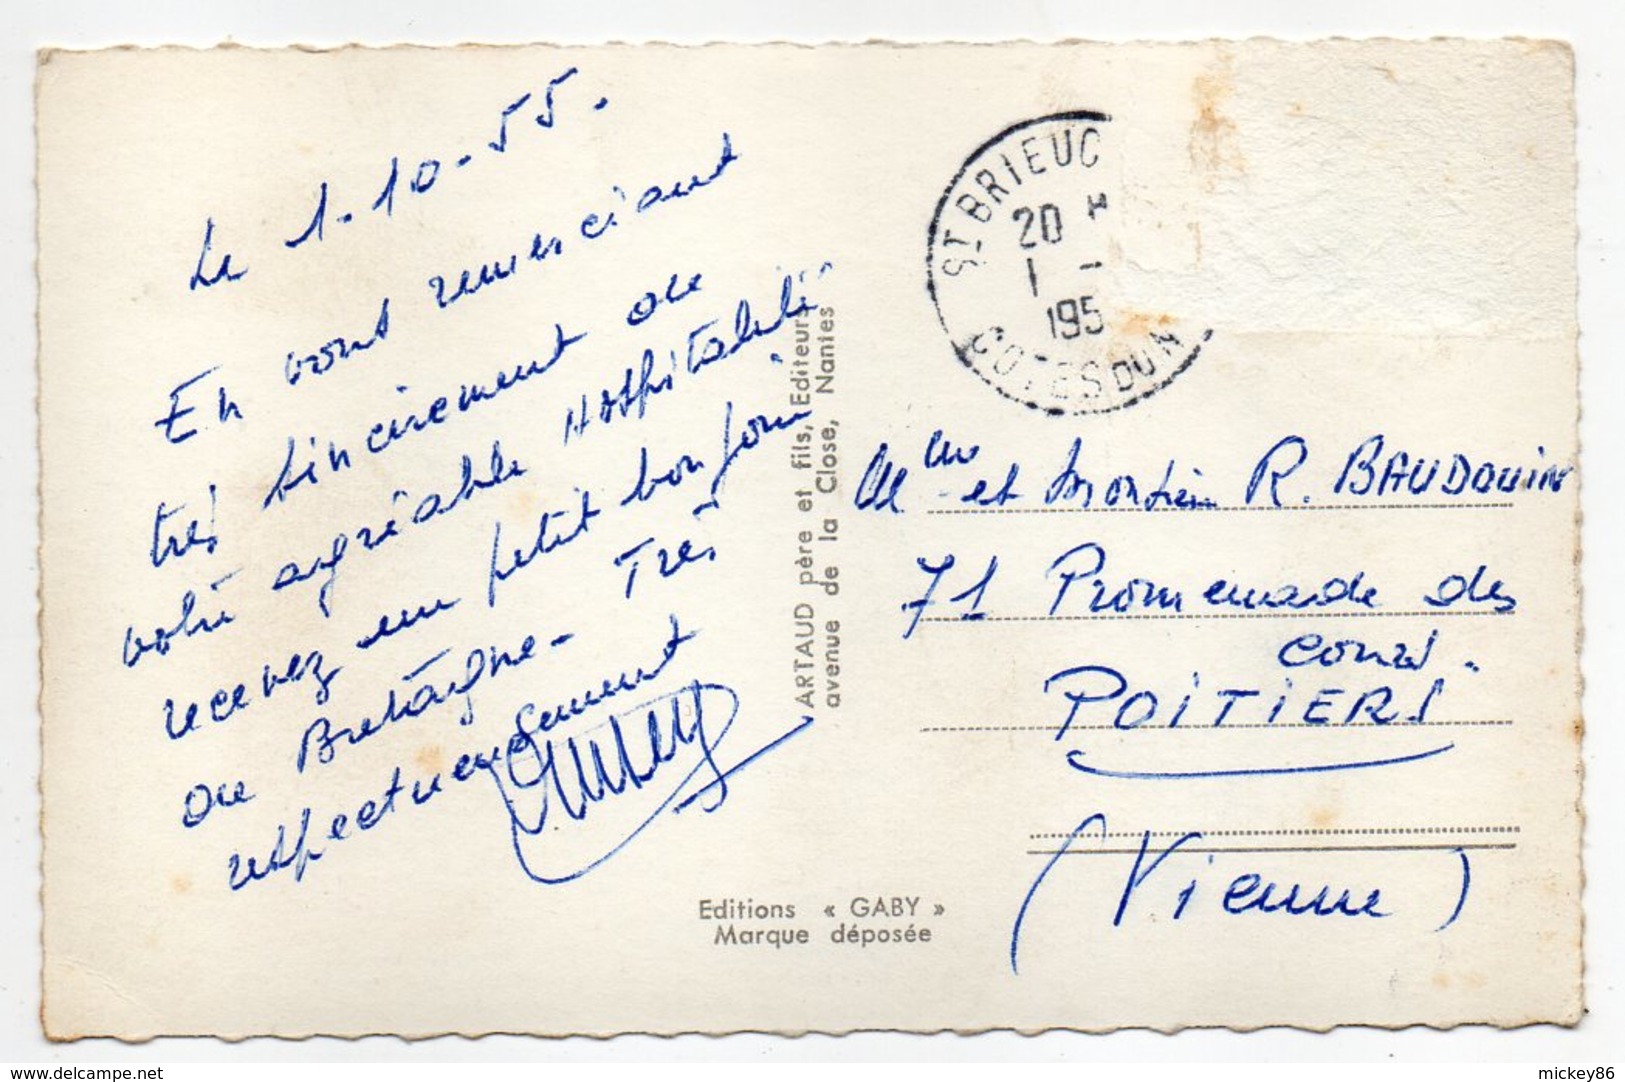 Le 1-10-55.
En vous remerciant
très sincèrement de
votre agréable Hospitalité
recevez un petit bonjour
de Bretagne - Très
respectueusement
ARTAUD père et fils, Editeurs
avenue de la Close, Nantes
Editions « GABY »
Marque déposée
ST BRIEUC
20 H
1 -
195
COTES DU N
Mme et Monsieur R. BAUDOUIN
71 Promenade des
cours.
POITIERS
(Vienne)
www.delcampe.net
mickey86